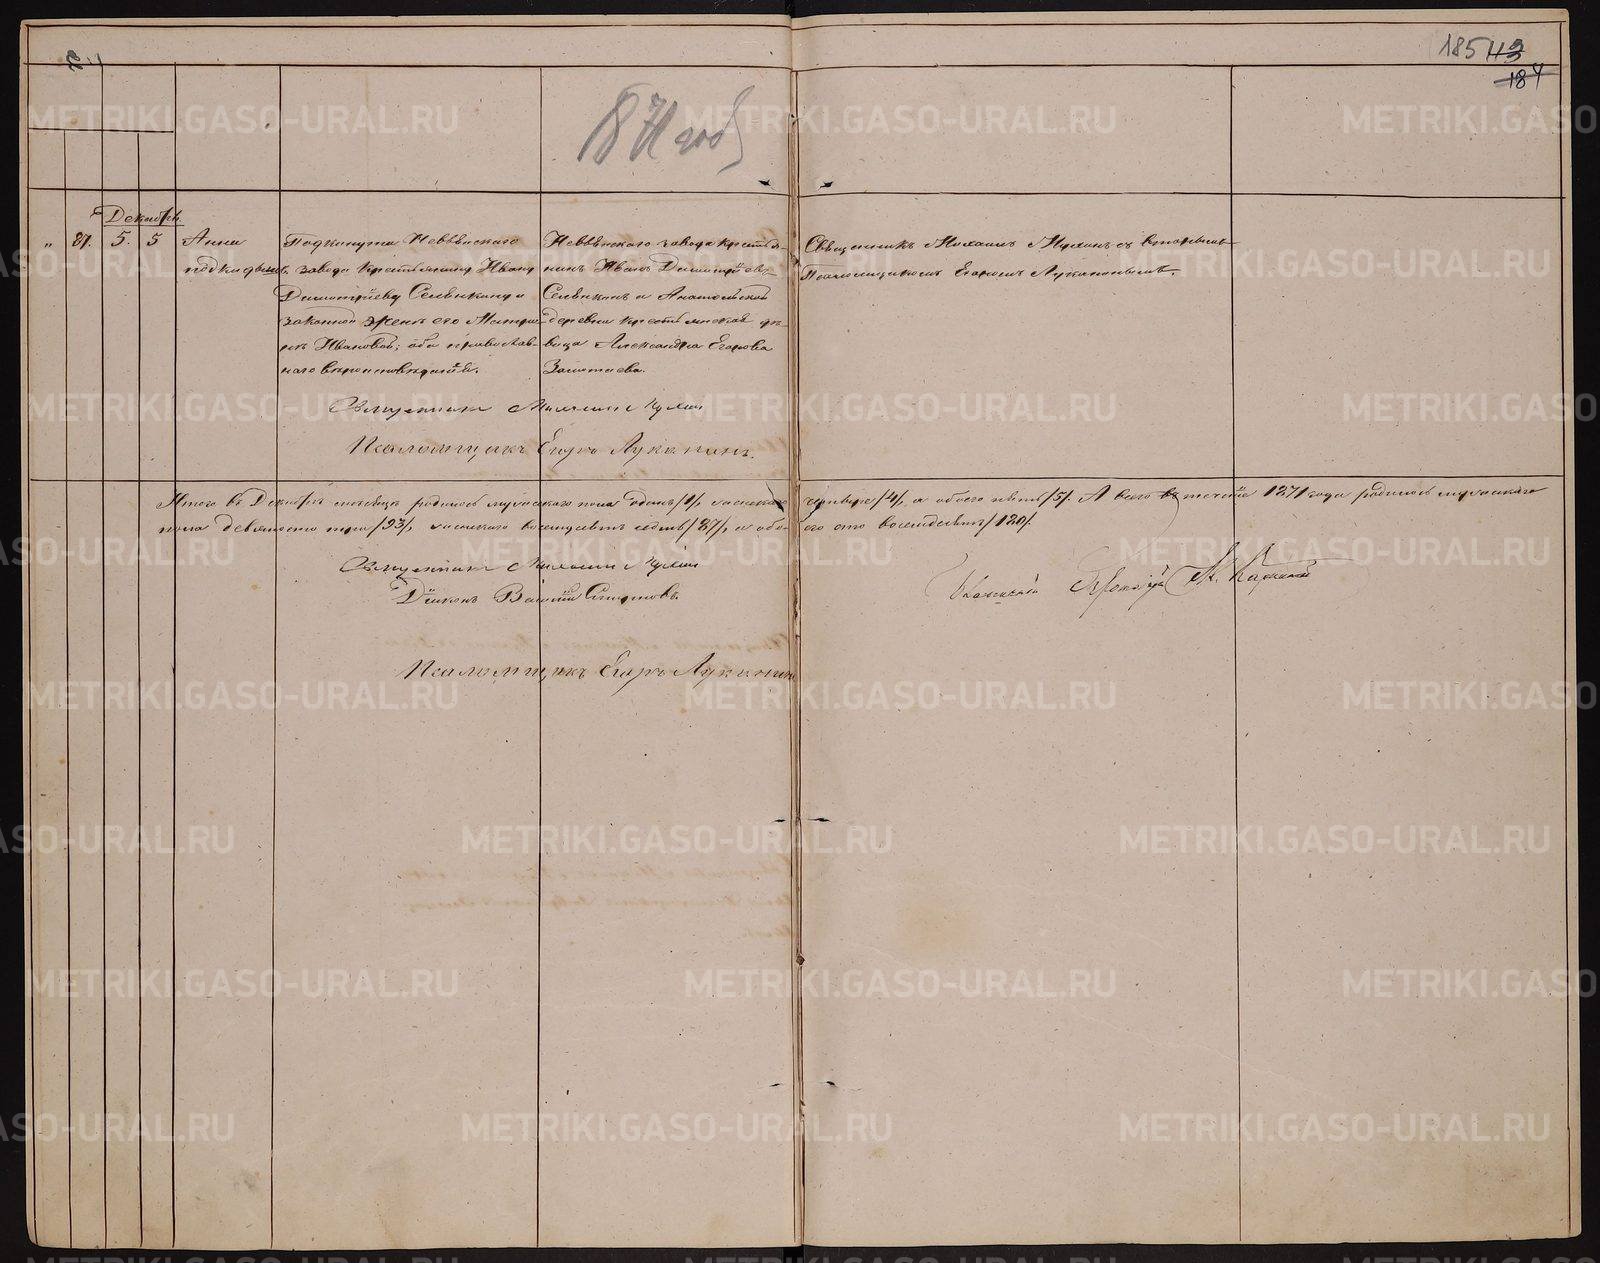 185 113
184
1871 годъ
Декабрь.
" 87. 5. 5 Анна
подкидышъ
Подкинута Невьянскаго
завода крестьянину Ивану
Димитріеву Селянкину и
законной женѣ его Матро-
нѣ Ивановой; оба православ-
наго вѣроисповѣданія.
Невьянскаго завода крестья-
нинъ Иванъ Димитріевъ
Селянкинъ и
деревни крестьянская дѣ-
вица Александра Егорова
Священникъ Михаилъ съ
Псаломщикомъ Егоромъ Луканинымъ.
Священникъ Михаилъ
Псаломщикъ Егоръ Луканинъ.
Итого въ Декабрѣ мѣсяцѣ родилось мужескаго пола одинъ /1/, женскаго четыре /4/, а обоего пять /5/. А всего въ теченіе 1871 года родилось мужескаго
пола девяносто три /93/, женскаго восемьдесятъ семь /87/, а обоего сто восемьдесятъ /180/.
Священникъ Михаилъ
Діаконъ Василій Смирновъ.
Псаломщикъ Егоръ Луканинъ
METRIKI.GASO-URAL.RU